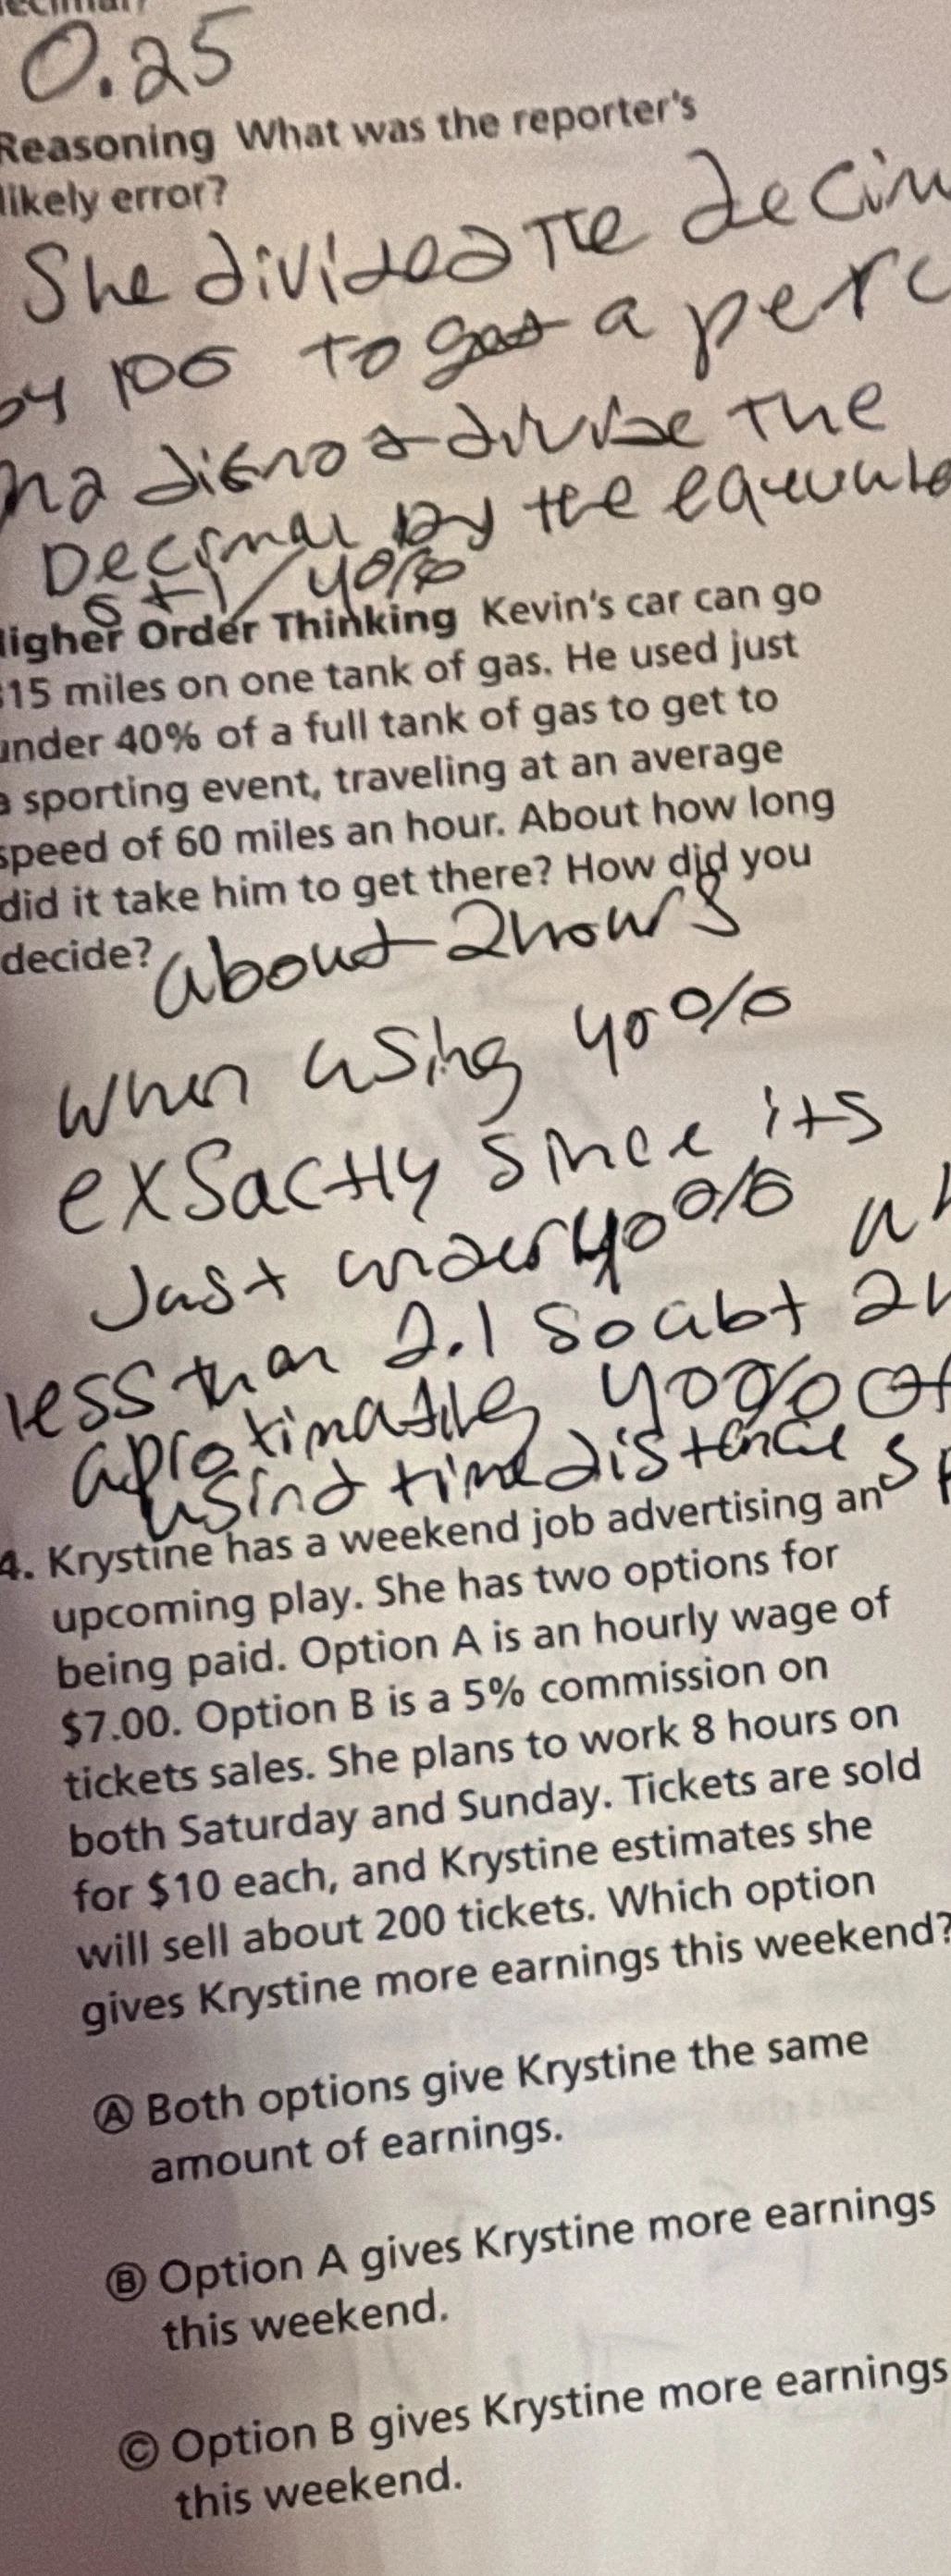 0.25
Reasoning What was the reporter's
likely error?
She divided the decim
by 100 to get a perc
divide the
Decimal by the
of 1/40%
Higher Order Thinking Kevin's car can go
315 miles on one tank of gas. He used just
under 40% of a full tank of gas to get to
a sporting event, traveling at an average
speed of 60 miles an hour. About how long
did it take him to get there? How did you
decide? about 2 hours
when using 40%
exsactly since its
Just under 40%
less than 2.1 so abt 2h
40% of
using time distance sp
4. Krystine has a weekend job advertising an
upcoming play. She has two options for
being paid. Option A is an hourly wage of
$7.00. Option B is a 5% commission on
tickets sales. She plans to work 8 hours on
both Saturday and Sunday. Tickets are sold
for $10 each, and Krystine estimates she
will sell about 200 tickets. Which option
gives Krystine more earnings this weekend?
Ⓐ Both options give Krystine the same
amount of earnings.
Ⓑ Option A gives Krystine more earnings
this weekend.
Ⓒ Option B gives Krystine more earnings
this weekend.